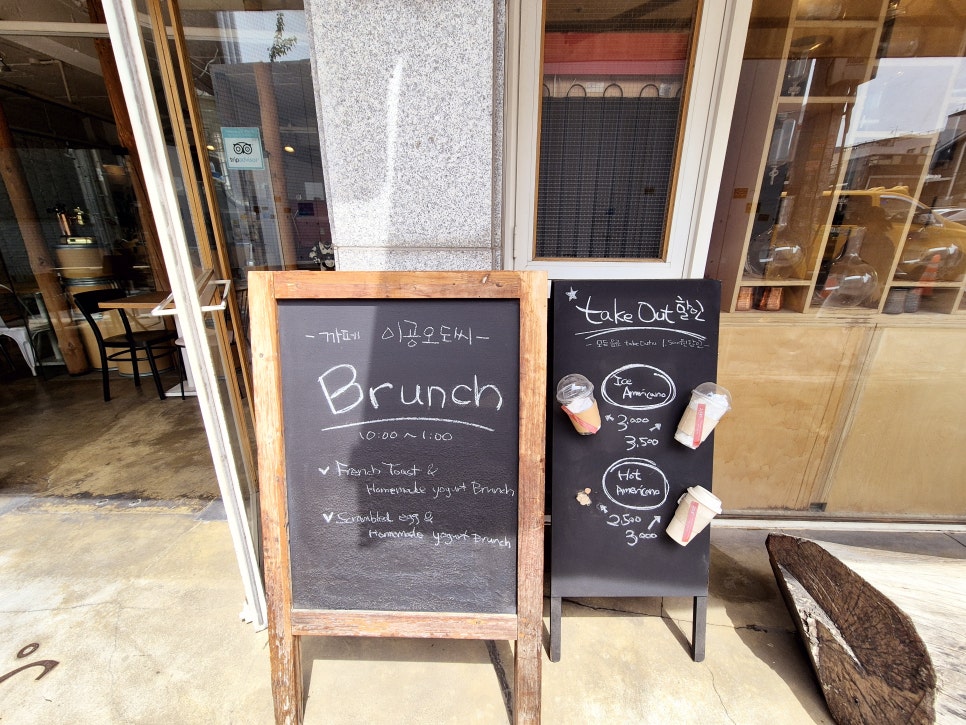 tripadvisor
-까페 이공오도씨-
Brunch
10:00 ~ 1:00
✓ French Toast &
Homemade yogurt Brunch
✓ Scrambled egg &
Homemade yogurt Brunch
take Out 할인
take Out시
Ice
Americano
3000
3,500
Hot
Americano
2,500
3000